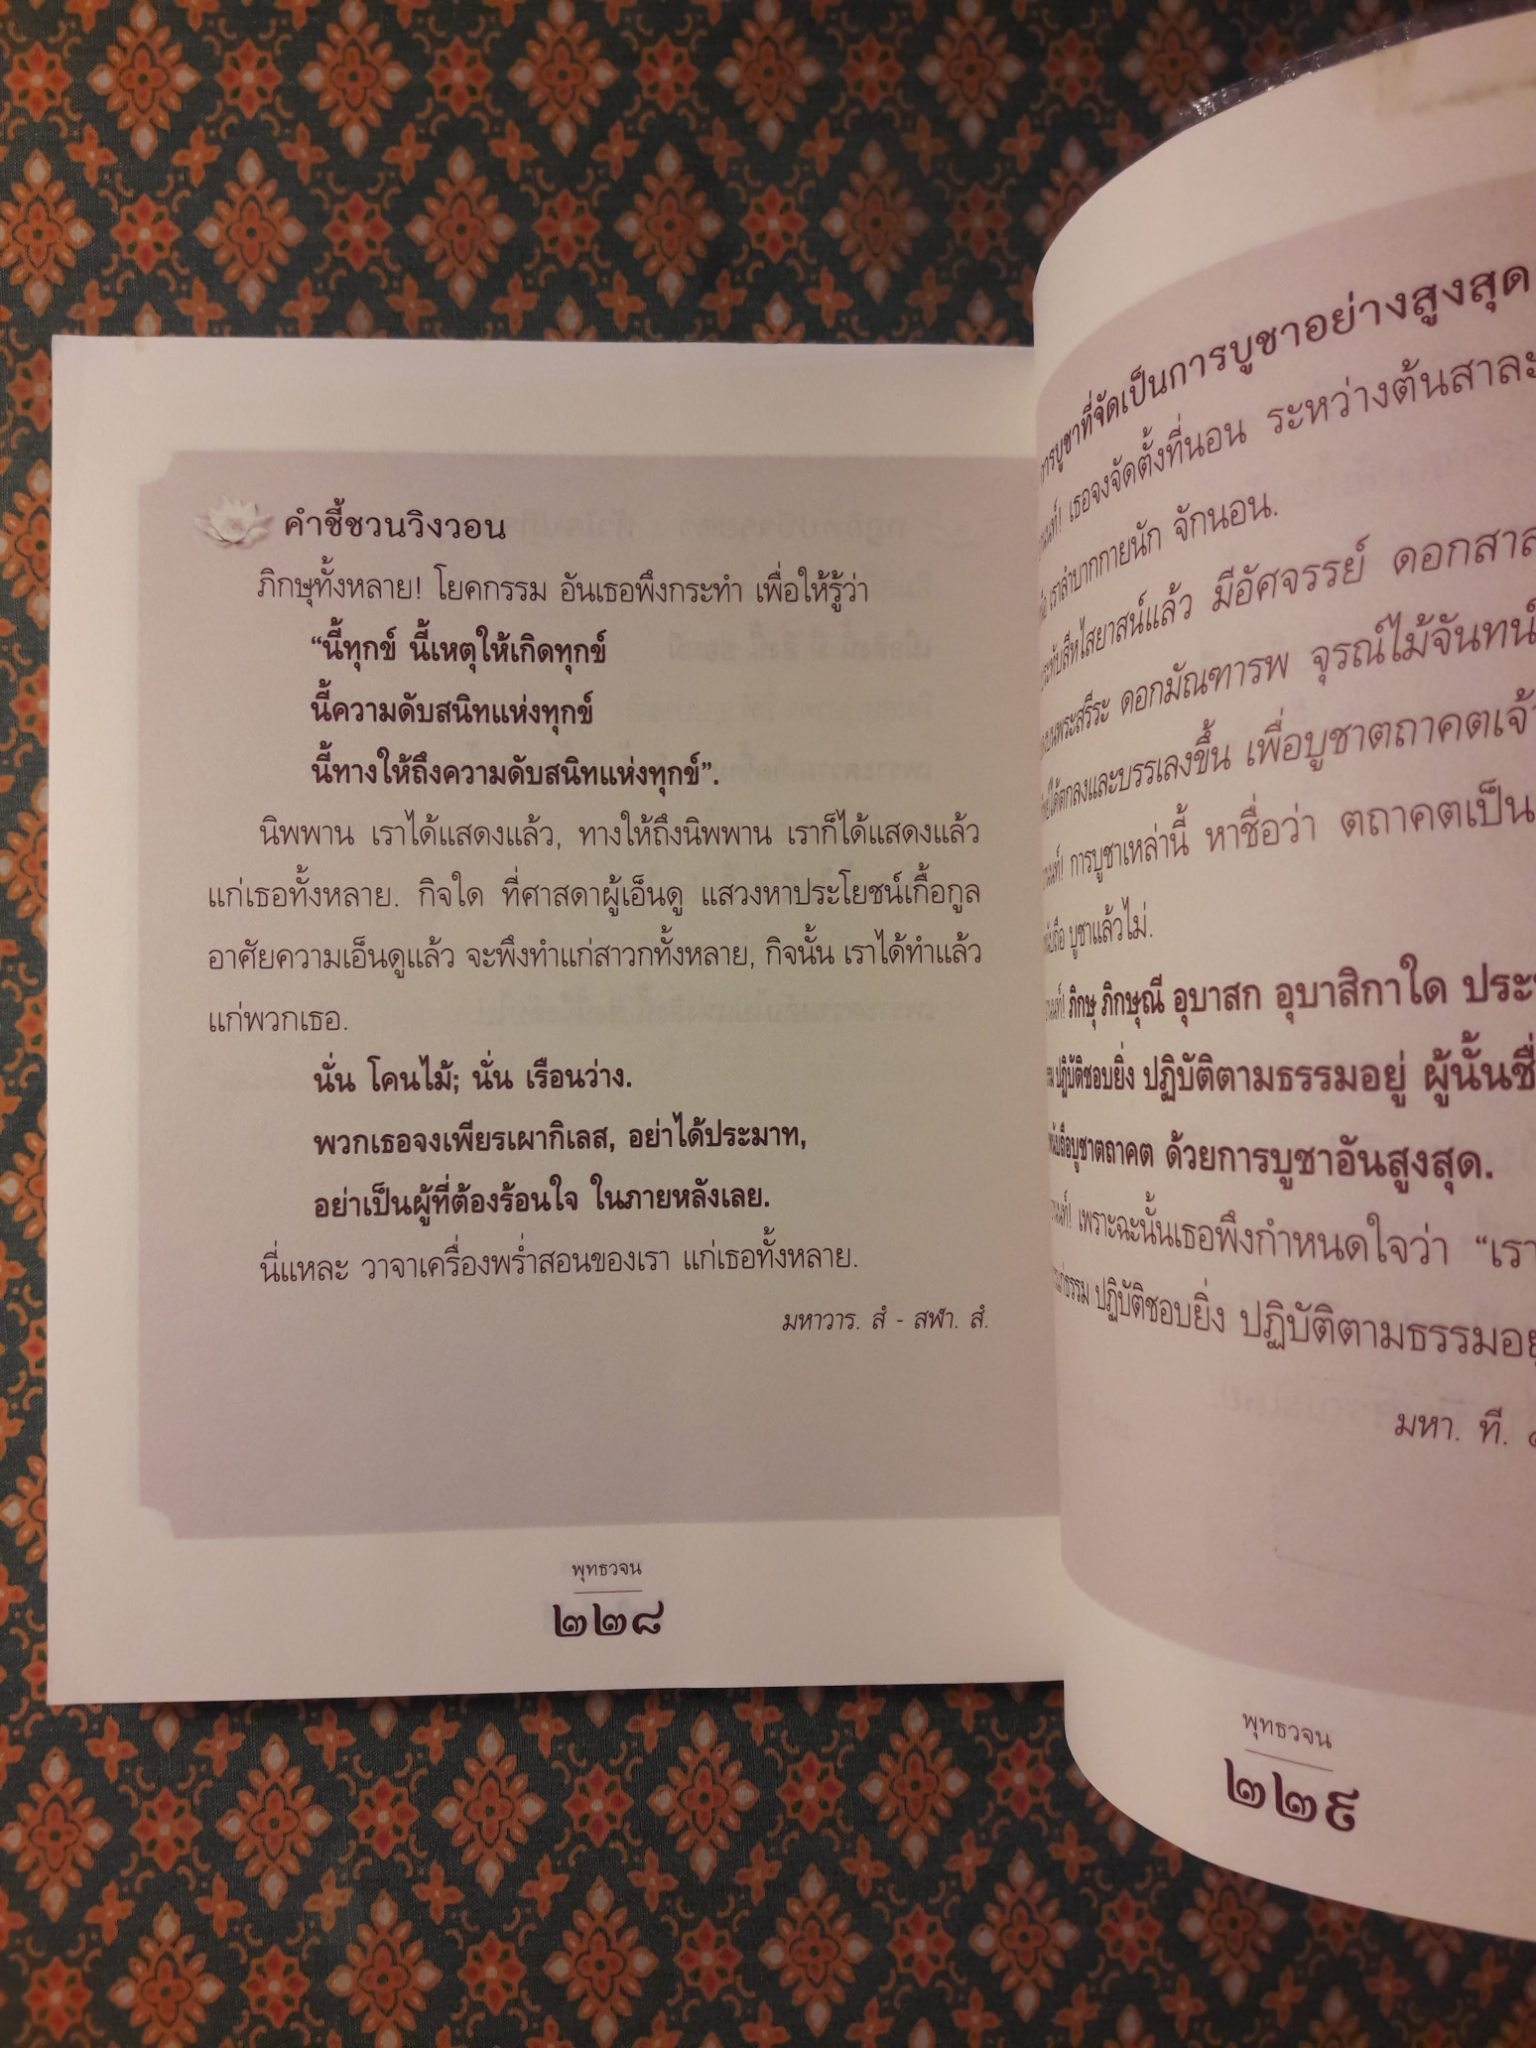 คำชี้ชวนวิงวอน
ภิกษุทั้งหลาย! โยคกรรม อันเธอพึงกระทำ เพื่อให้รู้ว่า
“นี้ทุกข์ นี้เหตุให้เกิดทุกข์
นี้ความดับสนิทแห่งทุกข์
นี้ทางให้ถึงความดับสนิทแห่งทุกข์”.
นิพพาน เราได้แสดงแล้ว, ทางให้ถึงนิพพาน เราก็ได้แสดงแล้ว
แก่เธอทั้งหลาย. กิจใด ที่ศาสดาผู้เอ็นดู แสวงหาประโยชน์เกื้อกูล
อาศัยความเอ็นดูแล้ว จะพึงทำแก่สาวกทั้งหลาย, กิจนั้น เราได้ทำแล้ว
แก่พวกเธอ.
นั่น โคนไม้; นั่น เรือนว่าง.
พวกเธอจงเพียรเผากิเลส, อย่าได้ประมาท,
อย่าเป็นผู้ที่ต้องร้อนใจ ในภายหลังเลย.
นี่แหละ วาจาเครื่องพร่ำสอนของเรา แก่เธอทั้งหลาย.
มหาวาร. สํ - สฬา. สํ.
พุทธวจน
๒๒๘
การบูชาที่จัดเป็นการบูชาอย่างสูงสุด
เธอจงจัดตั้งที่นอน ระหว่างต้นสาละ
เราลำบากกายนัก จักนอน.
แล้ว มีอัศจรรย์ ดอกสาล
ดอกมัณฑารพ จุรณ์ไม้จันทน์
และบรรเลงขึ้น เพื่อบูชาตถาคตเจ้า
การบูชาเหล่านี้ หาชื่อว่า ตถาคตเป็น
บูชาแล้วไม่.
ภิกษุ ภิกษุณี อุบาสก อุบาสิกาใด ประ
ปฏิบัติชอบยิ่ง ปฏิบัติตามธรรมอยู่ ผู้นั้นชื่
บูชาตถาคต ด้วยการบูชาอันสูงสุด.
เพราะฉะนั้นเธอพึงกำหนดใจว่า “เรา
ปฏิบัติชอบยิ่ง ปฏิบัติตามธรรมอยู่
มหา. ที.
พุทธวจน
๒๒๙